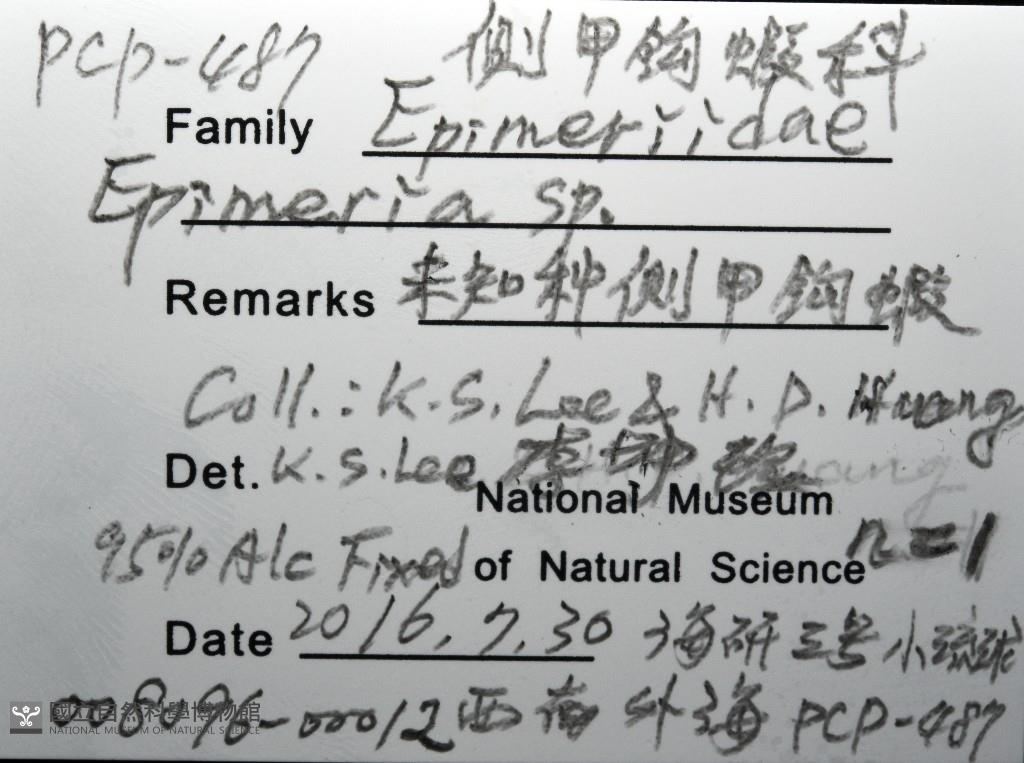 PCP-487 側甲鈎蝦科
Family Epimeriidae
Epimeria sp.
Remarks 未知种側甲鈎蝦
Coll.: K.S. Lee & H.D. Huang
Det. K.S. Lee
National Museum
95% Alc Fixed of Natural Science n=1
Date 2016.7.30 海研三号 小琉球
008096-00012 西南外海 PCP-487
國立自然科學博物館
NATIONAL MUSEUM OF NATURAL SCIENCE